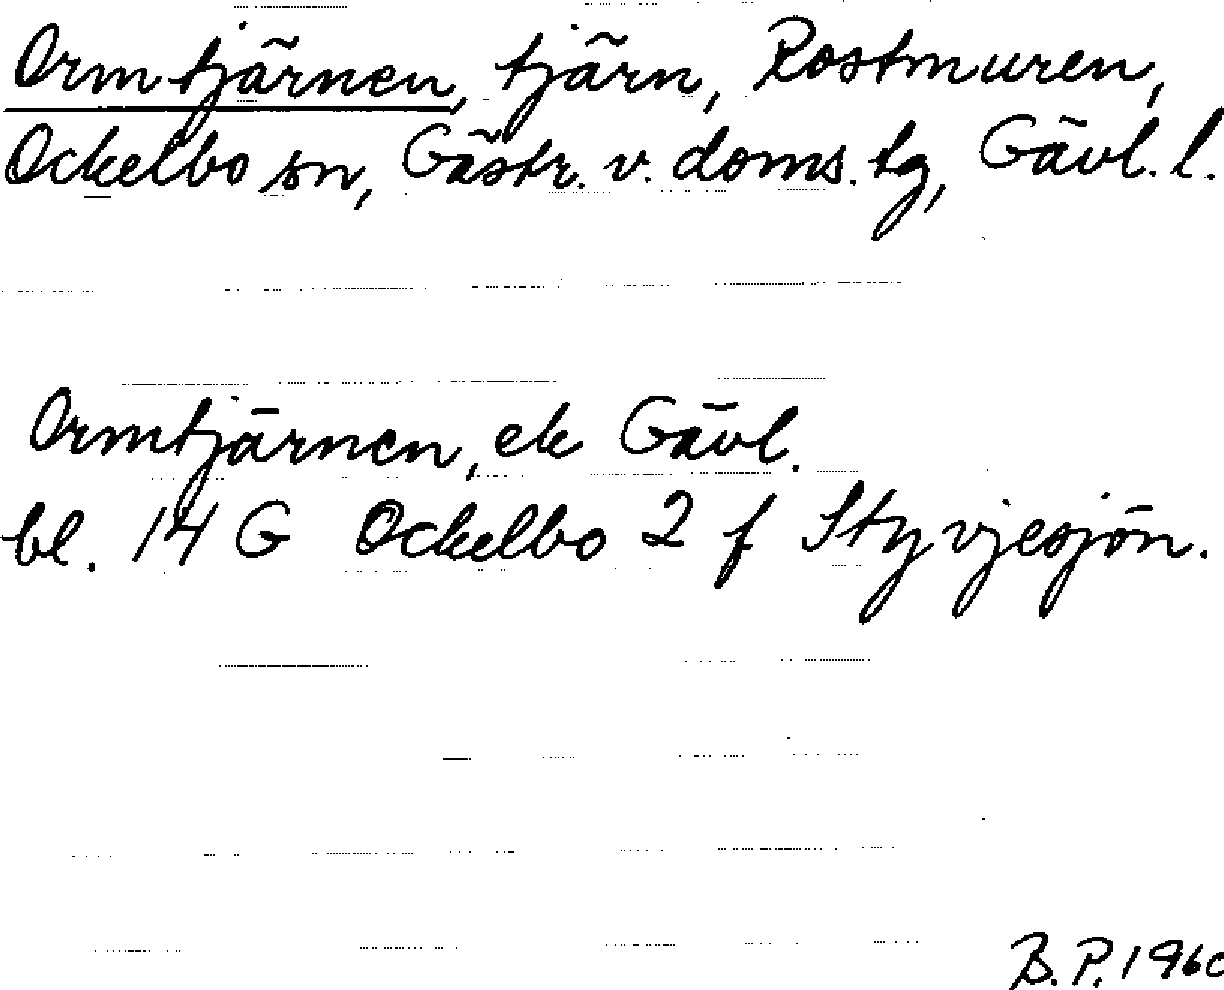 Ormtjärnen, tjärn, Rostmuren,
Ockelbo sn, Gästr. v. doms. tg, Gävl. l.
Ormtjärnen, ek Gävl.
bl. 14 G Ockelbo 2 f Styvjesjön.
B. P. 1960